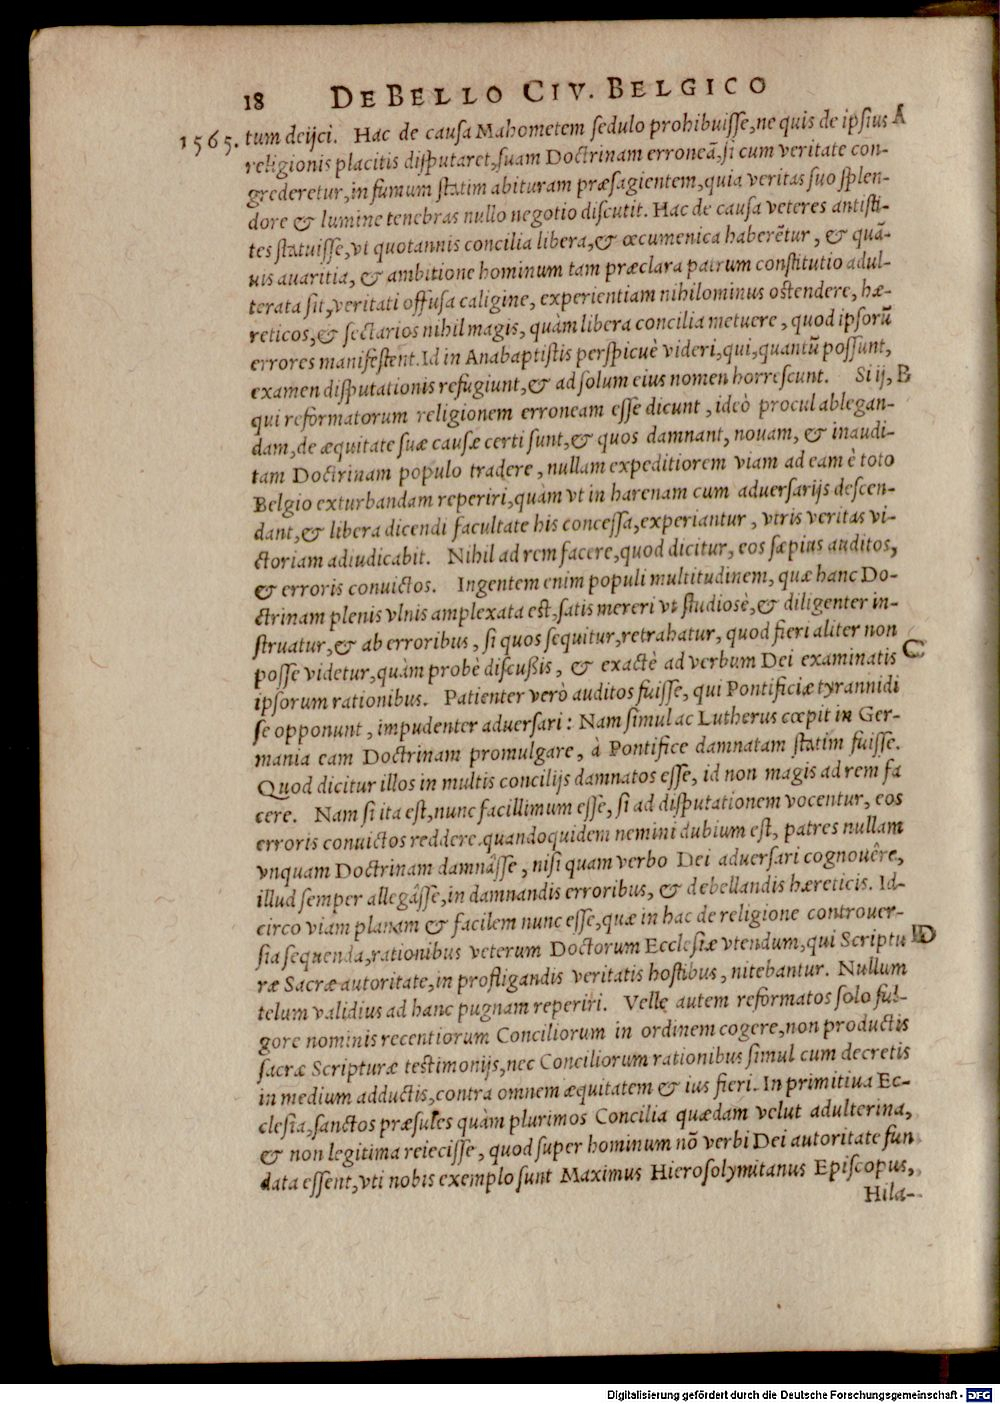 18 DE BELLO CIV. BELGICO
1565. tum deijci. Hac de causa Mahometem sedulo prohibuisse, ne quis de ipsius A
religionis placitis disputaret, suam Doctrinam erroneã, si cum veritate con-
grederetur, in fumum statim abituram præsagientem, quia veritas suo splen-
dore & lumine tenebras nullo negotio discutit. Hac de causa veteres antisti-
tes statuisse, vt quotannis concilia libera, & œcumenica haberẽtur, & quã-
uis auaritia, & ambitione hominum tam præclara patrum constitutio adul-
terata sit, veritati offusa caligine, experientiam nihilominus ostendere, hæ-
reticos, & sectarios nihil magis, quàm libera concilia metuere, quod ipsorũ
errores manifestent. Id in Anabaptistis perspicuè videri, qui, quantũ possunt,
examen disputationis refugiunt, & ad solum eius nomen horrescunt. Si ij, B
qui reformatorum religionem erroneam esse dicunt, ideò procul ablegan-
dam, de æquitate suæ causæ certi sunt, & quos damnant, nouam, & inaudi-
tam Doctrinam populo tradere, nullam expeditiorem viam ad eam è toto
Belgio exturbandam reperiri, quàm vt in harenam cum aduersarijs descen-
dant, & libera dicendi facultate his concessa, experiantur, vtris veritas vi-
ctoriam adiudicabit. Nihil ad rem facere, quod dicitur, eos sæpius auditos,
& erroris conuictos. Ingentem enim populi multitudinem, quæ hanc Do-
ctrinam plenis vlnis amplexata est, satis mereri vt studiosè, & diligenter in-
struatur, & ab erroribus, si quos sequitur, retrahatur, quod fieri aliter non
posse videtur, quàm probè discußis, & exactè ad verbum Dei examinatis C
ipsorum rationibus. Patienter verò auditos fuisse, qui Pontificiæ tyrannidi
se opponunt, impudenter aduersari: Nam simul ac Lutherus cœpit in Ger-
mania eam Doctrinam promulgare, à Pontifice damnatam statim fuisse.
Quod dicitur illos in multis concilijs damnatos esse, id non magis ad rem fa
cere. Nam si ita est, nunc facillimum esse, si ad disputationem vocentur, eos
erroris conuictos reddere. quandoquidem nemini dubium est, patres nullam
vnquam Doctrinam damnâsse, nisi quam verbo Dei aduersari cognouêre,
illud semper allegâsse, in damnandis erroribus, & debellandis hæreticis. Id-
circo viam planam & facilem nunc esse, quæ in hac de religione controuer-
sia sequenda, rationibus veterum Doctorum Ecclesiæ vtendum, qui Scriptu D
ræ Sacræ autoritate, in profligandis veritatis hostibus, nitebantur. Nullum
telum validius ad hanc pugnam reperiri. Velle autem reformatos solo ful-
gore nominis recentiorum Conciliorum in ordinem cogere, non productis
sacræ Scripturæ testimonijs, nec Conciliorum rationibus simul cum decretis
in medium adductis, contra omnem æquitatem & ius fieri. In primitiua Ec-
clesia, sanctos præsules quàm plurimos Concilia quædam velut adulterina,
& non legitima reiecisse, quod super hominum nõ verbi Dei autoritate fun
data essent, vti nobis exemplo sunt Maximus Hierosolymitanus Episcopus,
Hila-
Digitalisierung gefördert durch die Deutsche Forschungsgemeinschaft - DFG